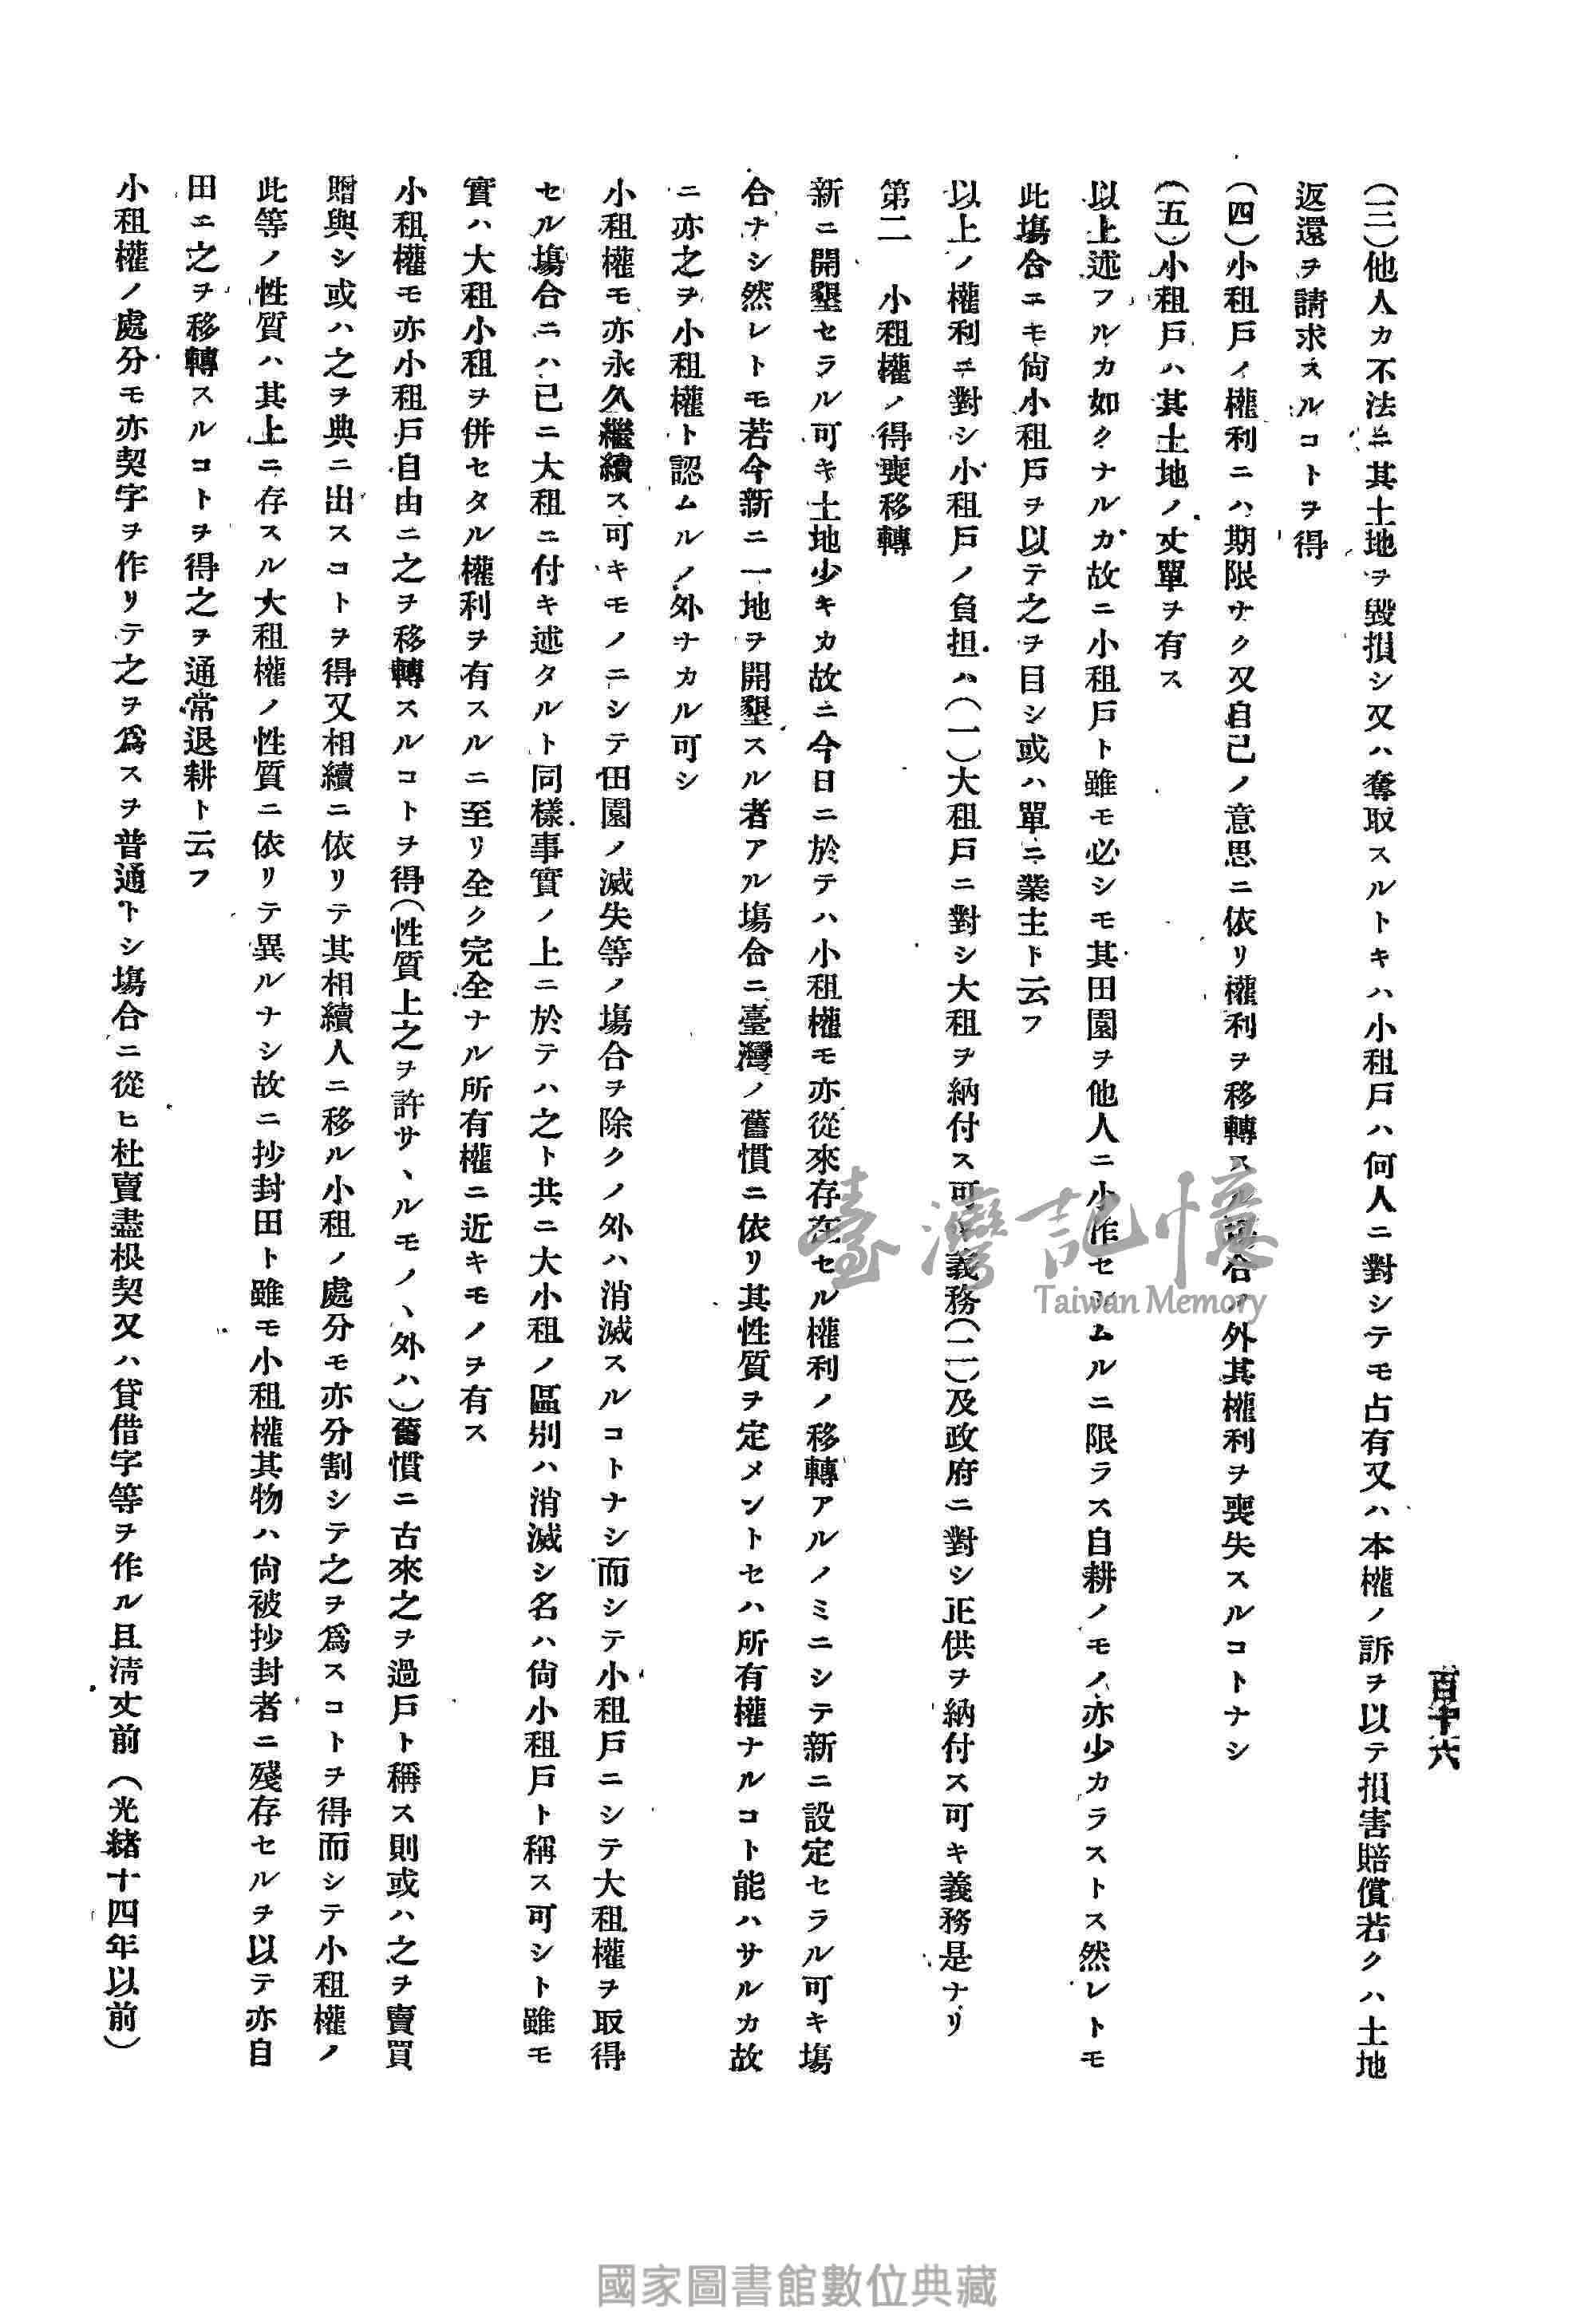 百十六
(三)他人カ不法ニ其土地ヲ毀損シ又ハ奪取スルトキハ小租戸ハ何人ニ對シテモ占有又ハ本權ノ訴ヲ以テ損害賠償若クハ土地
返還ヲ請求スルコトヲ得
(四)小租戸ノ權利ニハ期限ナク又自己ノ意思ニ依リ權利ヲ移轉スル場合ノ外其權利ヲ喪失スルコトナシ
(五)小租戸ハ其土地ノ丈單ヲ有ス
以上述フルカ如クナルカ故ニ小租戸ト雖モ必シモ其田園ヲ他人ニ小作セシムルニ限ラス自耕ノモノ亦少カラストス然レトモ
此塲合ニモ尙小租戸ヲ以テ之ヲ目シ或ハ單ニ業主ト云フ
以上ノ權利ニ對シ小租戸ノ負担ハ(一)大租戸ニ對シ大租ヲ納付ス可キ義務(二)及政府ニ對シ正供ヲ納付ス可キ義務是ナリ
第二 小租權ノ得喪移轉
新ニ開墾セラル可キ土地少キカ故ニ今日ニ於テハ小租權モ亦從來存在セル權利ノ移轉アルノミニシテ新ニ設定セラル可キ塲
合ナシ然レトモ若今新ニ一地ヲ開墾スル者アル塲合ニ臺灣ノ舊慣ニ依リ其性質ヲ定メントセハ所有權ナルコト能ハサルカ故
ニ亦之ヲ小租權ト認ムルノ外ナカル可シ
小租權モ亦永久繼續ス可キモノニシテ田園ノ滅失等ノ塲合ヲ除クノ外ハ消滅スルコトナシ而シテ小租戸ニシテ大租權ヲ取得
セル塲合ニハ已ニ大租ニ付キ述タルト同樣事實ノ上ニ於テハ之ト共ニ大小租ノ區別ハ消滅シ名ハ尙小租戸ト稱ス可シト雖モ
實ハ大租小租ヲ併セタル權利ヲ有スルニ至リ全ク完全ナル所有權ニ近キモノヲ有ス
小租權モ亦小租戸自由ニ之ヲ移轉スルコトヲ得(性質上之ヲ許サヽルモノヽ外ハ)舊慣ニ古來之ヲ過戸ト稱ス則或ハ之ヲ賣買
贈與シ或ハ之ヲ典ニ出スコトヲ得又相續ニ依リテ其相續人ニ移ル小租ノ處分モ亦分割シテ之ヲ爲スコトヲ得而シテ小租權ノ
此等ノ性質ハ其上ニ存スル大租權ノ性質ニ依リテ異ルナシ故ニ抄封田ト雖モ小租權其物ハ尙被抄封者ニ殘存セルヲ以テ亦自
田ニ之ヲ移轉スルコトヲ得之ヲ通常退耕ト云フ
小租權ノ處分モ亦契字ヲ作リテ之ヲ爲スヲ普通トシ塲合ニ從ヒ杜賣盡根契又ハ貸借字等ヲ作ル且淸丈前(光緖十四年以前)
臺灣記憶
Taiwan Memory
國家圖書館數位典藏